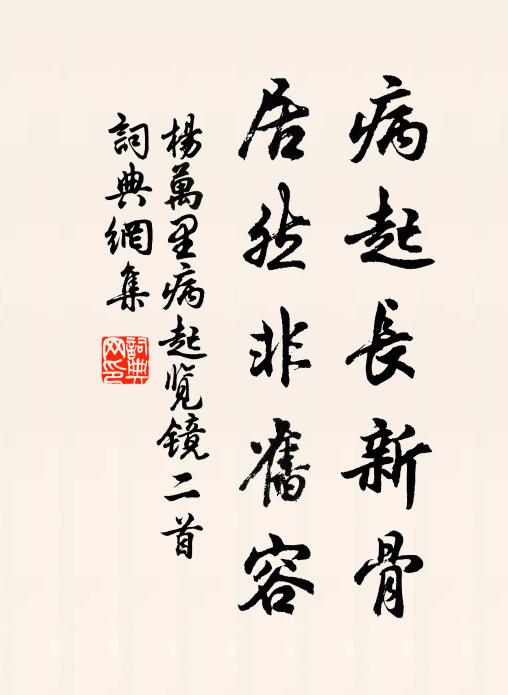 病起長新骨
居然非舊容
楊萬里病起览镜二首
詞典網集
詞典
网印